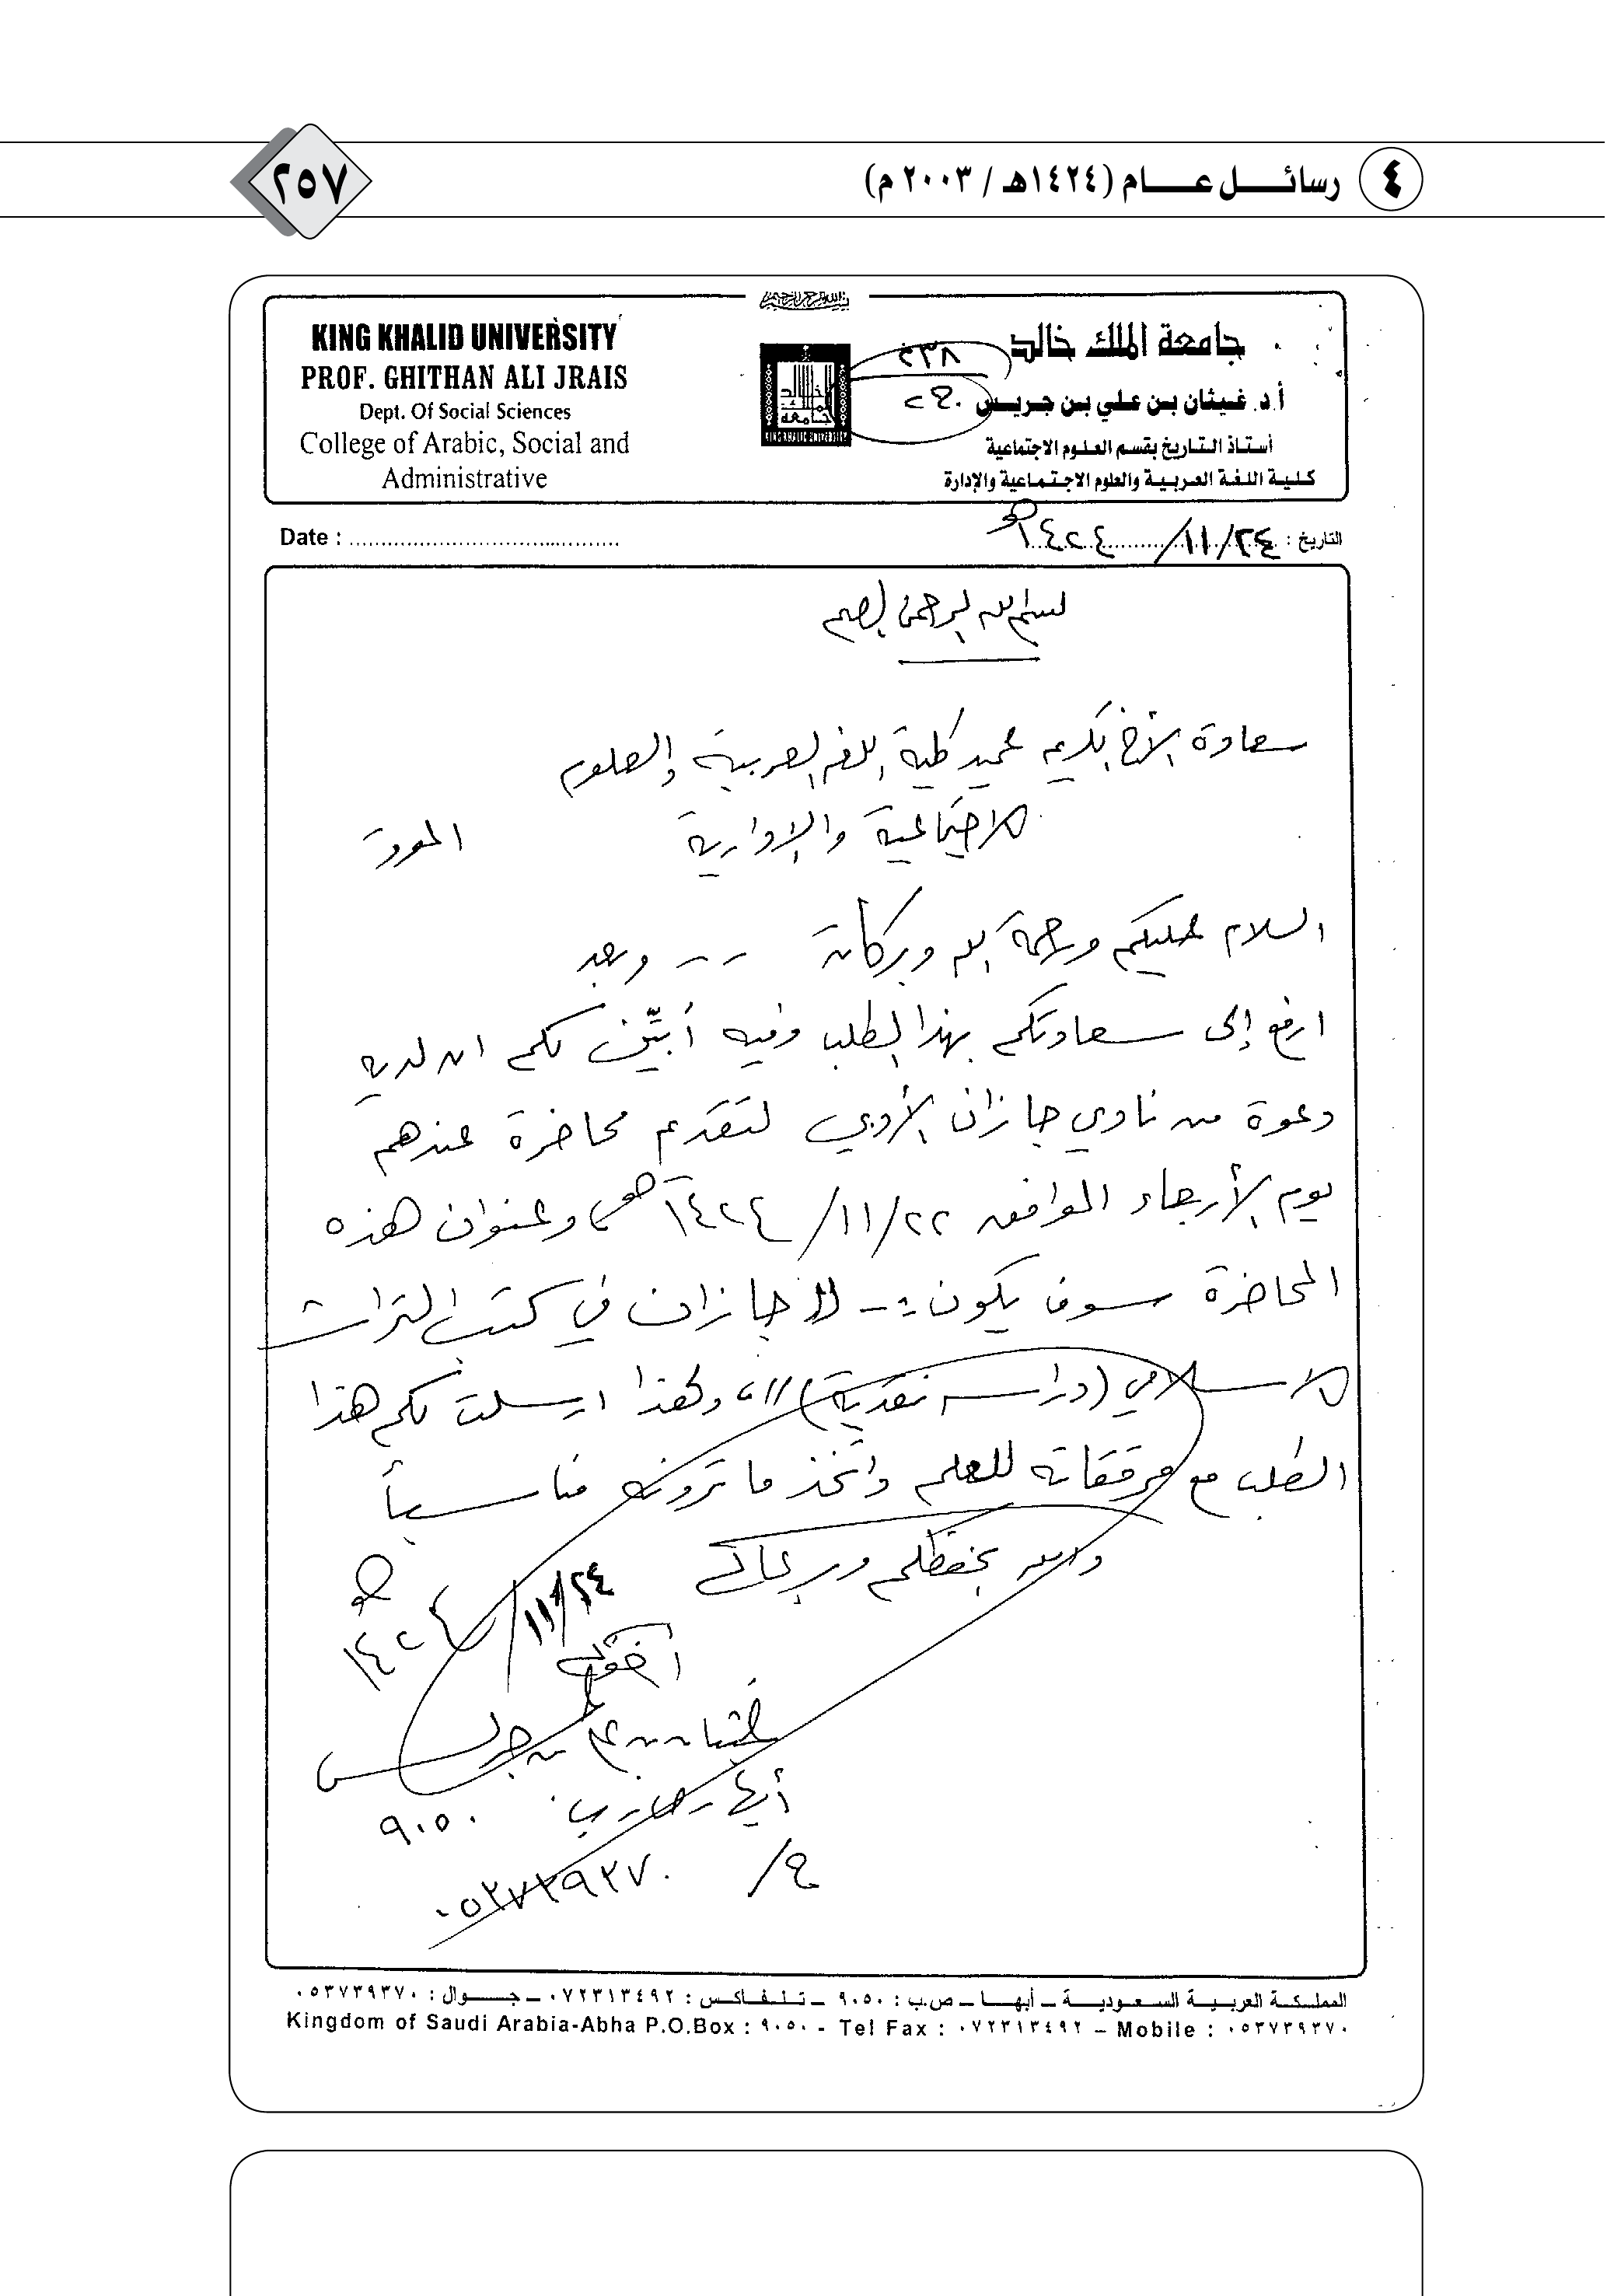 ٤ رسائل عام (١٤٢٤هـ / ٢٠٠٣م)
٢٥٧
بسم الله الرحمن الرحيم
KING KHALID UNIVERSITY
PROF. GHITHAN ALI JRAIS
Dept. Of Social Sciences
College of Arabic, Social and
Administrative
جامعة الملك خالد
أ.د. غيثان بن علي بن جريس
أستاذ التاريخ بقسم العلوم الاجتماعية
كلية اللغة العربية والعلوم الاجتماعية والإدارة
٢٣٨
KING KHALID UNIVERSITY
التاريخ : ٢٤/١١/١٤٢٤هـ
Date :
بسم الله الرحمن الرحيم
سعادة الأخ الكريم عميد كلية اللغة العربية والعلوم
الاجتماعية والإدارية الموقر
السلام عليكم ورحمة الله وبركاته -- وبعد
ارفع إلى سعادتكم بهذا الطلب وفيه أبيّن لكم ان لديه
دعوة من نادي جازان الأدبي لتقديم محاضرة عندهم
يوم الأربعاء الموافق ٢٢/١١/١٤٢٤هـ وعنوان هذه
المحاضرة سوف يكون :- (( جازان في كتب التراث
الاسلامي (دراسة نقدية) ))، ولهذا ارسلت لكم هذا
الطلب مع مرفقاته للعلم واتخذ ما ترونه مناسباً
والله يحفظكم ويرعاكم
٢٤/١١/١٤٢٤هـ
أخوكم
غيثان بن علي بن جريس
أبها - ص.ب ٩٠٥٠
ج/ ٠٥٣٧٣٩٣٧٠
المملكة العربية السعودية ـ أبها ـ ص.ب : ٩٠٥٠ ـ تلفاكس : ٠٧٢٣١٣٤٩٢ ـ جوال : ٠٥٣٧٣٩٣٧٠
Kingdom of Saudi Arabia-Abha P.O.Box : ٩٠٥٠ - Tel Fax : ٠٧٢٣١٣٤٩٢ – Mobile : ٠٥٣٧٣٩٣٧٠